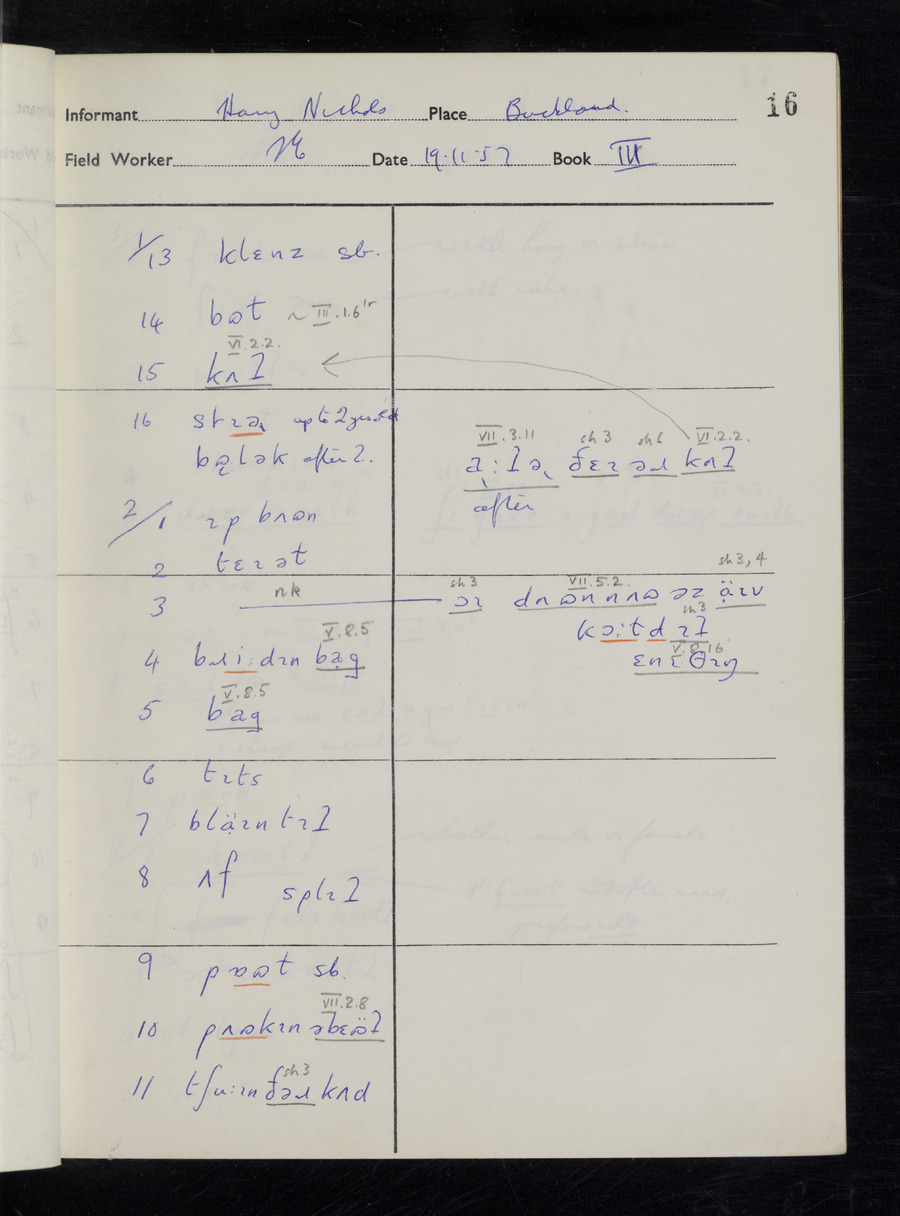 16
Informant Harry Nichols Place Buckland.
Field Worker Date 19·11·57 Book III
1/13 klɛnz sb.
14 bɷt ~ III.1.6
VI.2.2.
15 kʌɫ
16 stɪəʴ up to 2 years old
bʊlək after 2.
VII.3.11 sh 3 sh 6 VI.2.2.
a:ɫəʴ ðɛɪ əɹ kʌɫ
after
2/1 ɪp bʌɷn
2 tɛɪət
3 nk
sh 3 VII.5.2. sh 3, 4
əɪ dʌɷnnʌɷ əz äɪv
sh 3
kɔ:t d ɪɫ
V.8.16
ɛnɛθɪŋ
V.8.5
4 bɹi:dɪn bag
V.8.5
5 bag
6 tɪts
7 bläɪn tɪɫ
8 ʌf splɪɫ
9 pɒɷt sb.
VII.2.8
10 pʌɷkɪn əbɛɷ̈ɫ
sh 3
11 tʃu:ɪn ðəɹ kʌd